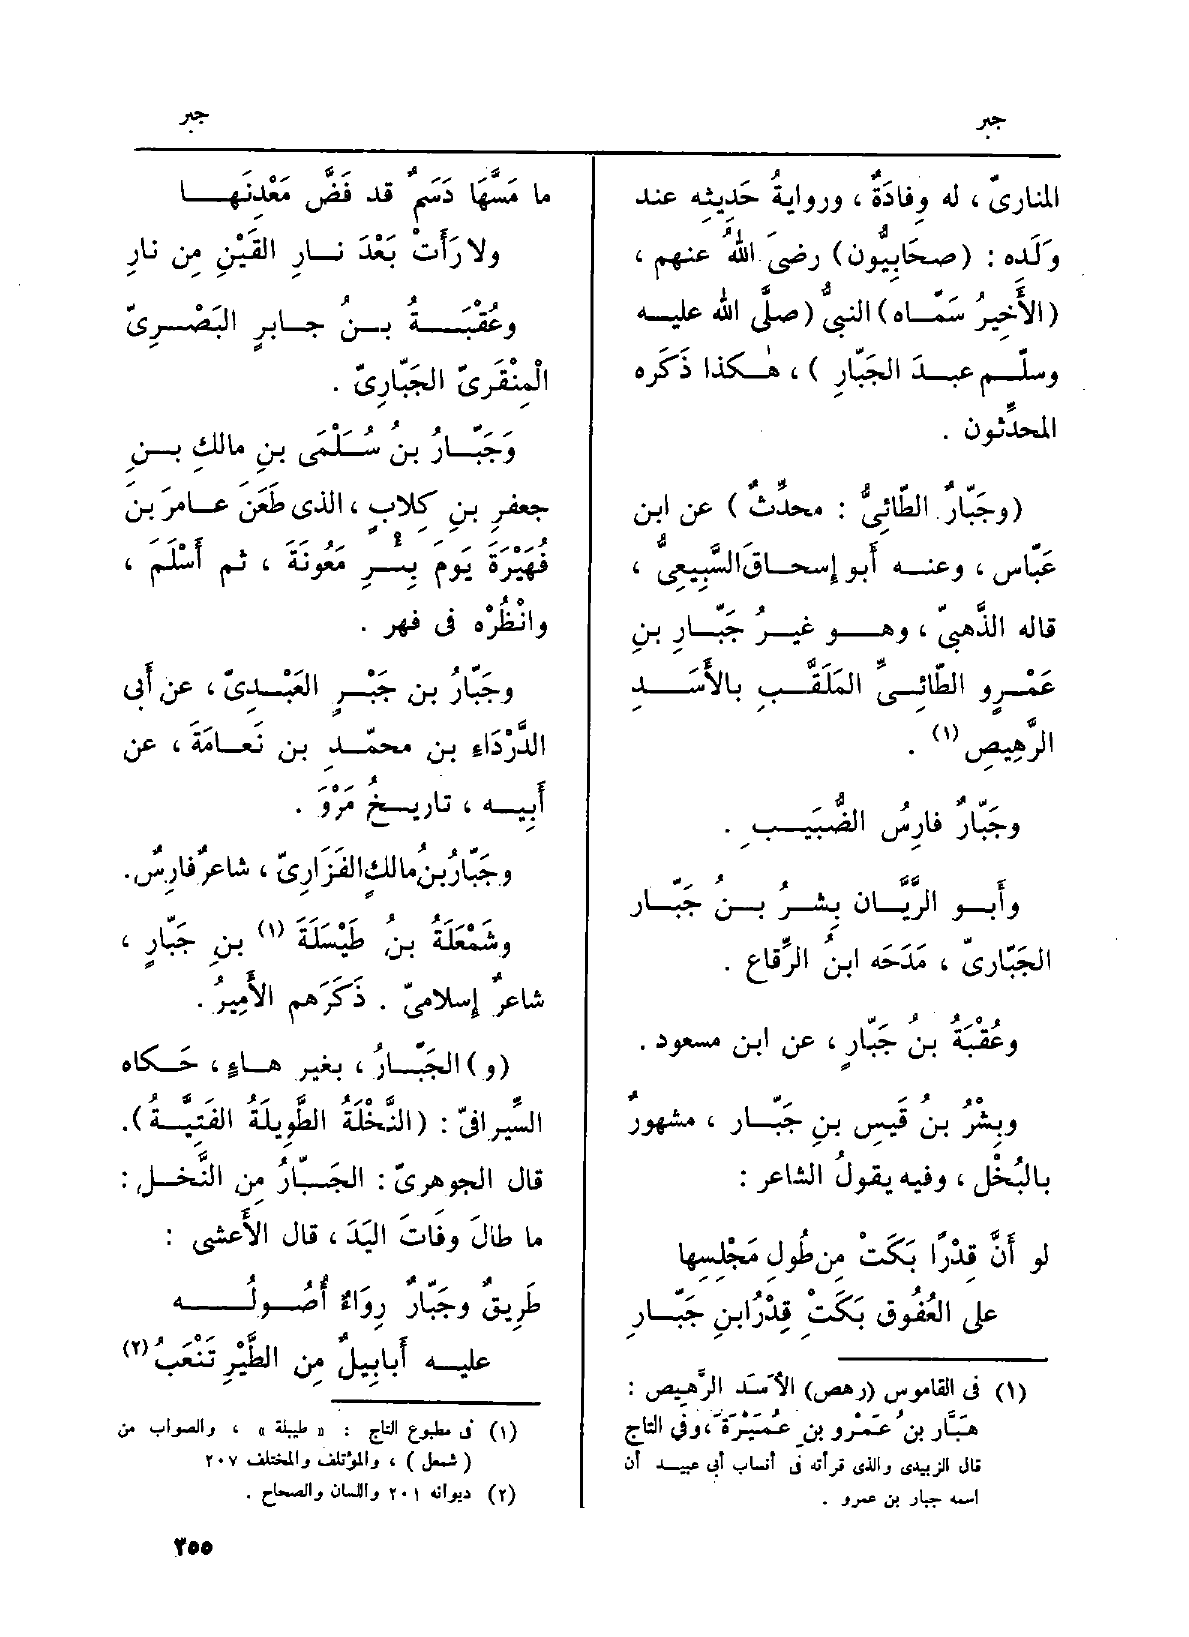 جبر
جبر
المنارىّ ، له وِفادَةٌ ، وروايةُ حَدِيثِه عند
وَلَدِه : (صحَابِيُّون) رضىَ اللهُ عنهم ،
(الأَخِيرُ سَمَّاه) النبىُّ (صلَّى اللهُ عليه
وسلّم عبدَ الجَبّارِ ) ، هٰكذا ذَكَره
المحدِّثون .
(وجَبّارٌ الطّائِىُّ : محدِّثٌ) عن ابن
عَبّاس ، وعنه أَبو إسحاقَ السَّبِيعِىُّ ،
قاله الذَّهبىّ ، وهو غيرُ جَبّارِ بنِ
عَمْرٍو الطّائِىِّ المَلَقَّبِ بالأَسَدِ
الرَّهِيصِ (١) .
وجَبّارٌ فارِسُ الضُّبَيبِ .
وأَبو الرَّيَّان بِشرُ بنُ جَبّار
الجَبّارىّ ، مَدَحَه ابنُ الرِّقاع .
وعُقْبَةُ بنُ جَبّارٍ ، عن ابن مسعود .
وبِشْرُ بنُ قَيسِ بنِ جَبّار ، مشهورٌ
بالبُخْل ، وفيه يقولُ الشاعر :
لو أَنَّ قِدْرًا بَكَتْ مِن طُولِ مَجْلِسِها
على العُفُوق بَكَتْ قِدْرُ ابنِ جَبّارِ
(١) فى القاموس (رهص) الأَسَد الرَّهِيص :
هَبّار بنُ عَمْرو بنِ عُمَيْرَةَ ، وفى التاج
قال الزبيدى والذى قرأته فى أنساب أبى عبيد أن
اسمه جبار بن عمرو .
ما مَسَّهَا دَسَمٌ قد فَضَّ مَعْدِنَها
ولا رَأَتْ بَعْدَ نارِ القَيْنِ مِن نارِ
وعُقْبَةُ بنُ جابرٍ البَصْرِىّ
الْمِنْقَرِىّ الجَبّارِىّ .
وَجَبّارُ بنُ سُلْمَى بنِ مالكِ بنِ
جعفرِ بنِ كِلابٍ ، الذى طَعَنَ عامرَ بنَ
فُهَيْرَةَ يَومَ بِئرِ مَعُونَةَ ، ثم أَسْلَمَ ،
وانْظُرْه فى فهر .
وجَبّارُ بن جَبْرٍ العَبْدِىّ ، عن أَبى
الدَّرْدَاءِ بن محمّدِ بن نَعامَةَ ، عن
أَبِيه ، تاريخُ مَرْوَ .
وجَبّارُ بنُ مالكٍ الفَزَارِىّ ، شاعرٌ فارِسٌ .
وشَمْعَلَةُ بنُ طَيْسَلَةَ (١) بنِ جَبّارٍ ،
شاعرٌ إسلامىّ . ذَكَرَهم الأَمِيرُ .
(و) الجَبّارُ ، بغير هاءٍ ، حَكاه
السِّيرافىّ : (النَّخْلَةُ الطَّوِيلَةُ الفَتِيَّةُ) .
قال الجوهرىّ : الجَبّارُ مِن النَّخلِ :
ما طالَ وفَاتَ اليَدَ ، قال الأَعشى :
طَرِيقٌ وجَبّارٌ رِوَاءٌ أُصُولُه
عليه أَبابِيلٌ مِن الطَّيْرِ تَنْعَبُ (٢)
(١) فى مطبوع التاج : « طيبلة » ، والصواب من
(شمعل) ، والمؤتلف والمختلف ٢٠٧
(٢) ديوانه ٢٠١ واللسان والصحاح .
٣٥٥